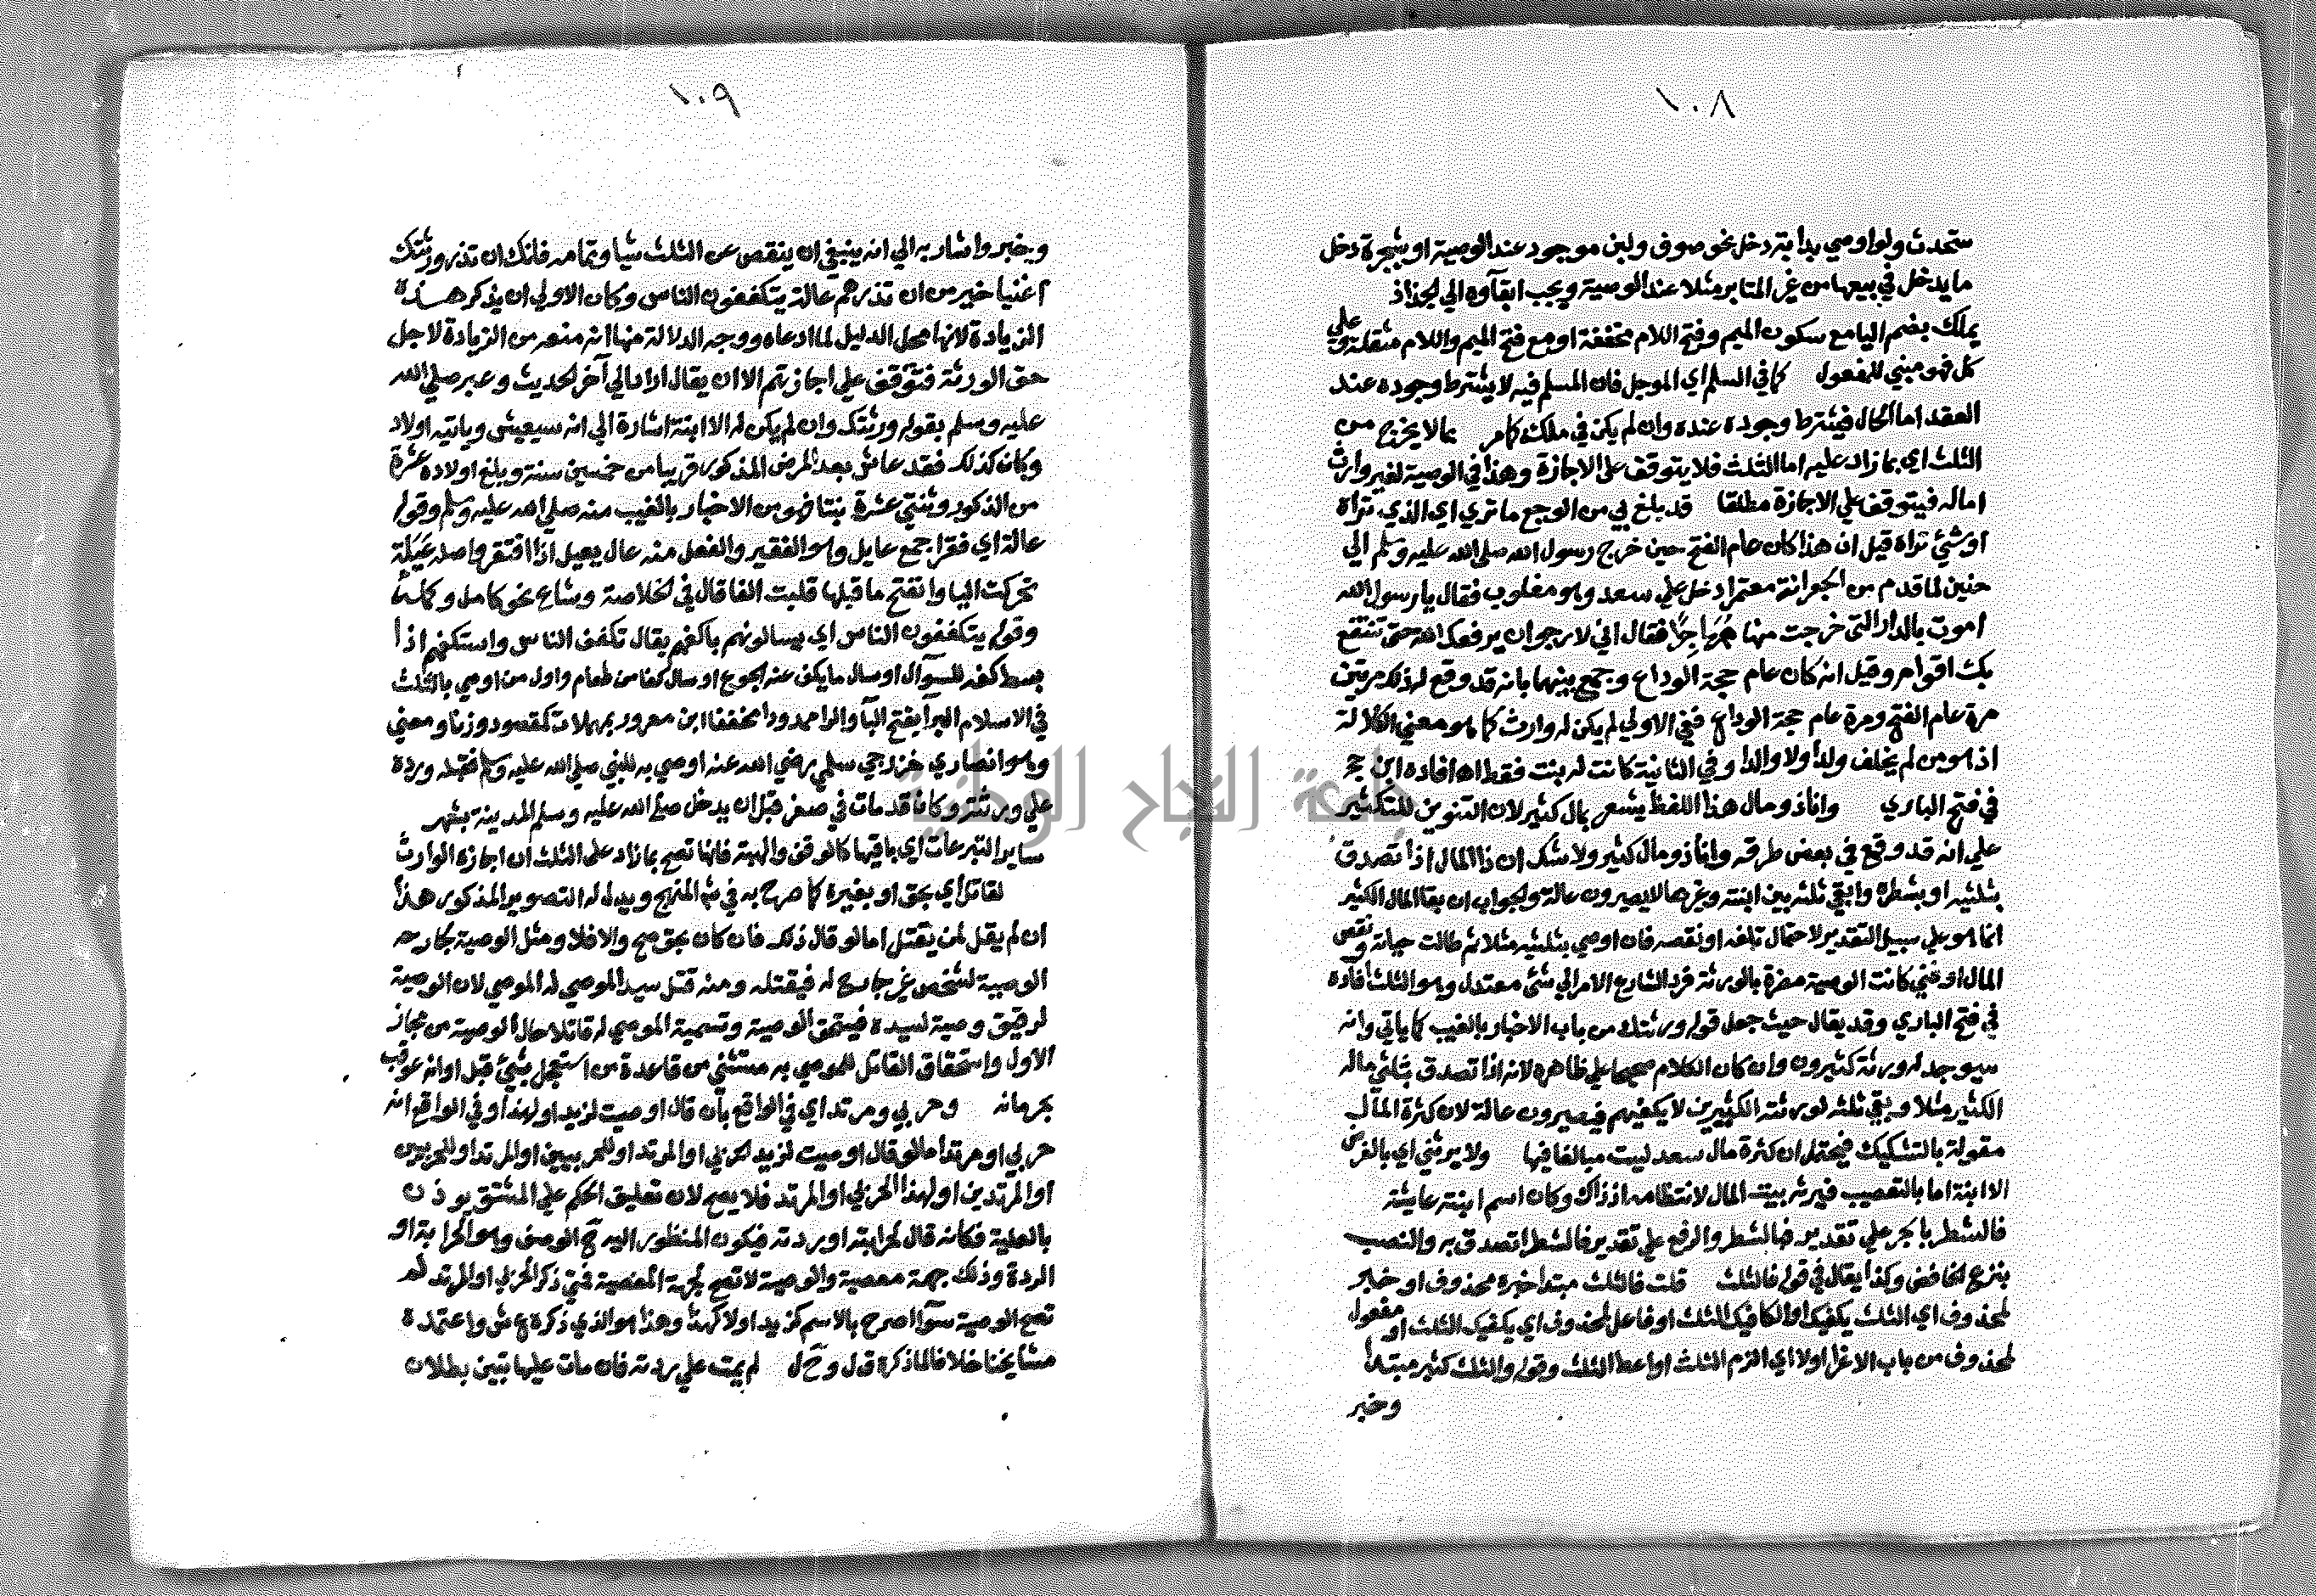 ١٠٨
ستحدث ولو اوصي بدابة دخل نحو صوف ولبن موجود عند الوصية او بشجرة دخل
ما يدخل في بيعها من غير المتابر مثلا عند الوصية ويجب ابقآوه الي الجذاذ
يملك بضم اليا مع سكون الميم وفتح اللام مخففة او مع فتح الميم واللام مثقلة وعلي
كل فهو مبني للمفعول كما في السلم اي الموجل فان المسلم فيه لا يشترط وجوده عند
العقد اما الحال فيشترط وجوده عنده وان لم يكن في ملكه كما مر بما لا يخرج من
الثلث اي بما زاد عليه اما الثلث فلا يتوقف على الاجازة وهذا في الوصية لغير وارث
اما له فيتوقف علي الاجازة مطلقا قد بلغ بي من الوجع ما تري اي الذي تراه
او شئ تراه قيل ان هذا كان عام الفتح حين خرج رسول الله صلى الله عليه وسلم الي
حنين لما قدم من الجعرانة معتمرا دخل علي سعد وهو مغلوب فقال يا رسول الله
اموت بالدار التي خرجت منها مُهَاجِرًا فقال اني لارجو ان يرفعك الله حتى تنتفع
بك اقوام وقيل انه كان عام حجة الوداع وجمع بينهما بانه قد وقع له ذلك مرتين
مرة عام الفتح ومرة عام حجة الوداع ففي الاولي لم يكن له وارث كما هو معني الكلالة
اذ هو من لم يخلف ولدا ولا والدا وفي الثانية كانت له بنت فقط اه افاده ابن حجر
في فتح الباري وانا ذو مال هذا اللفظ يشعر بمال كثير لان التنوين للتكثير
علي انه قد وقع في بعض طرقه وانا ذو مال كثير ولا شك ان ذا المال اذا تصدق
بثلثيه او بشطره وابقي ثلثه بين ابنته وغيرها لا يصيرون عالة والجواب ان بقا المال الكثير
انما هو علي سبيل التقدير لاحتمال تلفه او نقصه فان اوصي بثلثيه مثلا ثم طالت حياته ونقص
المال او فني كانت الوصية مضرة بالورثة فرد الشارع الامر الي شئ معتدل وهو الثلث افاده
في فتح الباري وقد يقال حيث جعل قوله ورثتك من باب الاخبار بالغيب كما ياتي وانه
سيوجد له ورثة كثيرون وان كان الكلام صحيحا علي ظاهره لانه اذا تصدق بثلثي ماله
الكثير مثلا وبقي ثلثه لورثته الكثيرين لا يكفيهم فيصيرون عالة لان كثرة المال
مقولة بالتشكيك فيحتمل ان كثرة مال سعد ليست مبالغا فيها ولا يرثني اي بالفرض
الا ابنة اما بالتعصيب فيرثه بيت المال لانتظامه اذ ذاك وكان اسم ابنته عايشة
فالشطر بالجر علي تقدير فبالشطر والرفع علي تقدير فالشطر اتصدق به والنصب
بنزع الخافض وكذا يقال في قوله فالثلث قلت فالثلث مبتدا خبره محذوف او خبر
لمحذوف اي الثلث يكفيك او الكافيك الثلث او فاعل لمحذوف اي يكفيك الثلث او مفعول
لمحذوف من باب الاغرا اولا اي الزم الثلث او اعط الثلث وقوله والثلث كثير مبتدا
وخبر
١٠٩
وخبر واشار به الي انه ينبغي ان ينقص عن الثلث شيا وتمامه فانك ان تذر ورثتك
اغنيا خير من ان تذرهم عالة يتكففون الناس وكان الاولي ان يذكر هذه
الزيادة لانها محل الدليل لما ادعاه ووجه الدلالة منها انه منعه من الزيادة لاجل
حق الورثة فتوقف علي اجازتهم الا ان يقال اراد الي آخر الحديث وعبر صلي الله
عليه وسلم بقوله ورثتك وان لم يكن له الا ابنة اشارة الي انه سيعيش وياتيه اولاد
وكان كذلك فقد عاش بعد المرض المذكور قريبا من خمسين سنة وبلغ اولاده عشرة
من الذكور وثنتي عشرة بنتا فهو من الاخبار بالغيب منه صلي الله عليه وسلم وقوله
عالة اي فقرا جمع عايل وهو الفقير والفعل منه عال يعيل اذا افتقر واصله عَيَلَة
تحركت اليا وانفتح ما قبلها قلبت الفا قال في الخلاصة وشاع نحو كامل وكملة
وقوله يتكففون الناس اي يسالونهم باكفهم يقال تكفف الناس واستكفهم اذا
بسط كفه للسوآل او سال ما يكف عنه الجوع او سال كفا من طعام واول من اوصي بالثلث
في الاسلام البرا بفتح البآ والرا ممدودا مخففا ابن معرور بمهملات كمقصود وزنا ومعني
وهو انصاري خزرجي سلمي رضي الله عنه اوصي به للنبي صلي الله عليه وسلم فقبله ورده
علي ورثته وكان قد مات في صفر قبل ان يدخل صلي الله عليه وسلم المدينة بشهر
ساير التبرعات اي باقيها كالوقف والهبة فانها تصح بما زاد على الثلث ان اجازه الوارث
لقاتل اي بحق او بغيره كما صرح به في شم المنهج ويدل له التصوير المذكور هذا
ان لم يقل لمن يقتل اما لو قال ذلك فان كان بحق صح والا فلا ومثل الوصية لجارحه
الوصية لشخص غير جارح له فيقتله ومنه قتل سيد الموصي له الموصي لان الوصية
لرقيق وصية لسيده فيستحق الوصية وتسمية الموصي له قاتلا حال الوصية من مجاز
الاول واستحقاق القاتل للموصي به مستثني من قاعدة من استعجل بشئ قبل اوانه عوقب
بحرمانه وحربي ومرتد اي في الواقع بان قال اوصيت لزيد او لهذا وفي الواقع انه
حربي او مرتد اما لو قال اوصيت لزيد الحربي او المرتد او للحربيين او المرتد او للحربيين
او المرتدين او لهذا الحربي او المرتد فلا يصح لان تعليق الحكم علي المشتق يوذن
بالعلية فكانه قال لحرابته او ردته فيكون المنظور اليه ح الوصف وهو الحرابة او
الردة وذلك جهة معصية والوصية لا تصح لجهة المعصية فمتي ذكر الحربي او المرتد لم
تصح الوصية سوآ اصرح بالاسم كزيد او لا كهذا وهذا هو الذي ذكره ع ش واعتمده
مشايخنا خلافا لما ذكره ق ل و ح ل لم يمت علي ردته فان مات عليها تبين بطلان
جامعة النجاح الوطنية